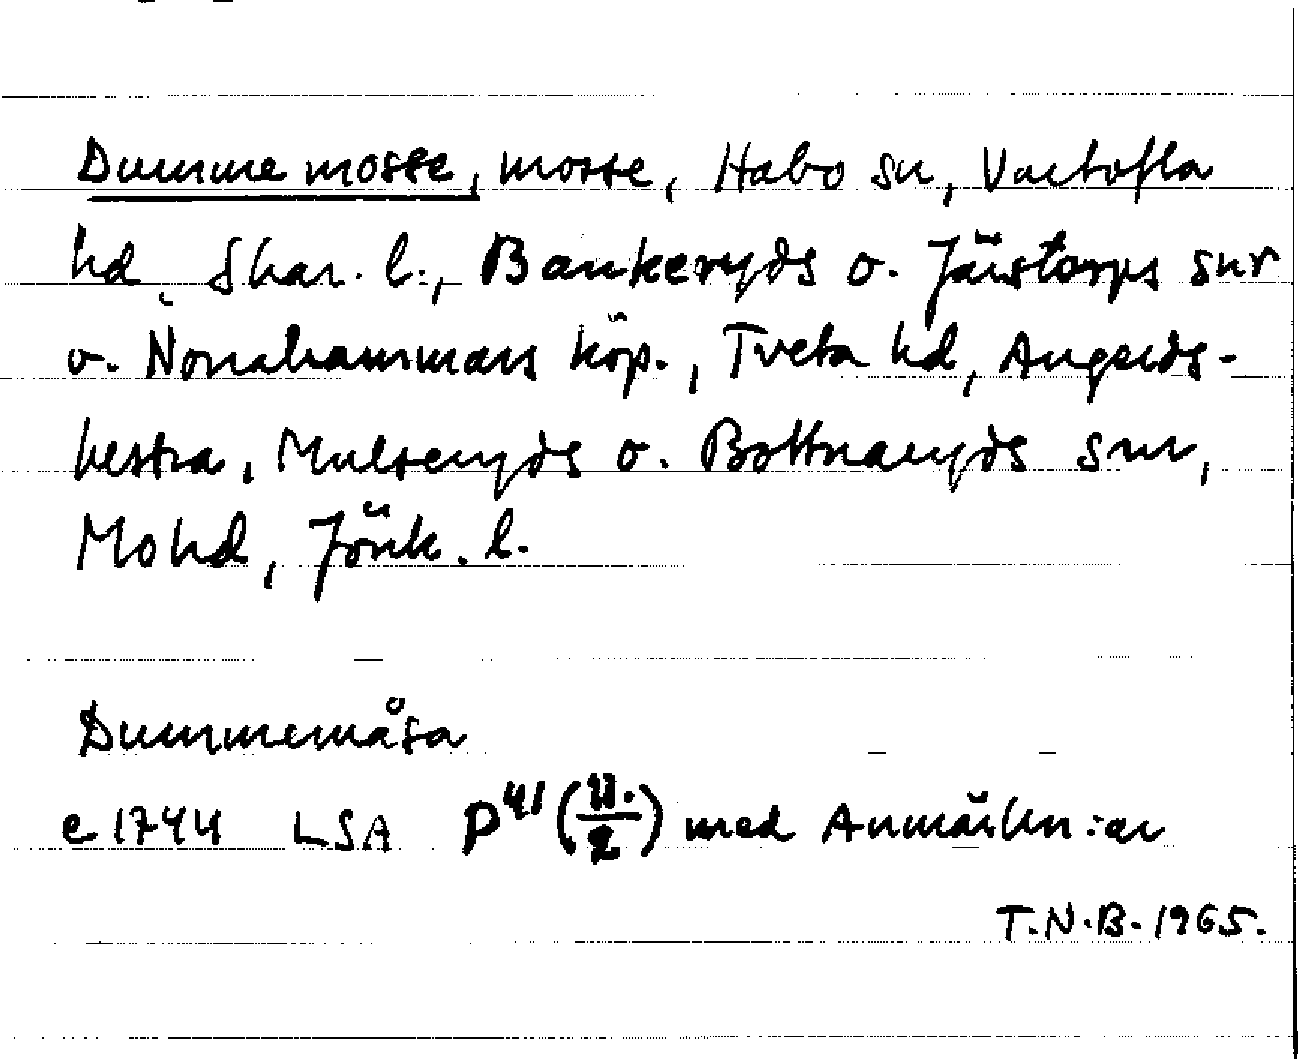 Dumme mosse, mosse, Habo sn, Vartofta
hd, Skar. l., Bankeryds o. Järstorps snr
o. Norrahammars köp., Tveta hd, Angerds-
hestra, Mulseryds o. Bottnaryds snr,
Mo hd, Jönk. l.
Dummemåsa
e 1744 LSA P41 (11./2) med Anmärkn:ar
T.N.B. 1965.